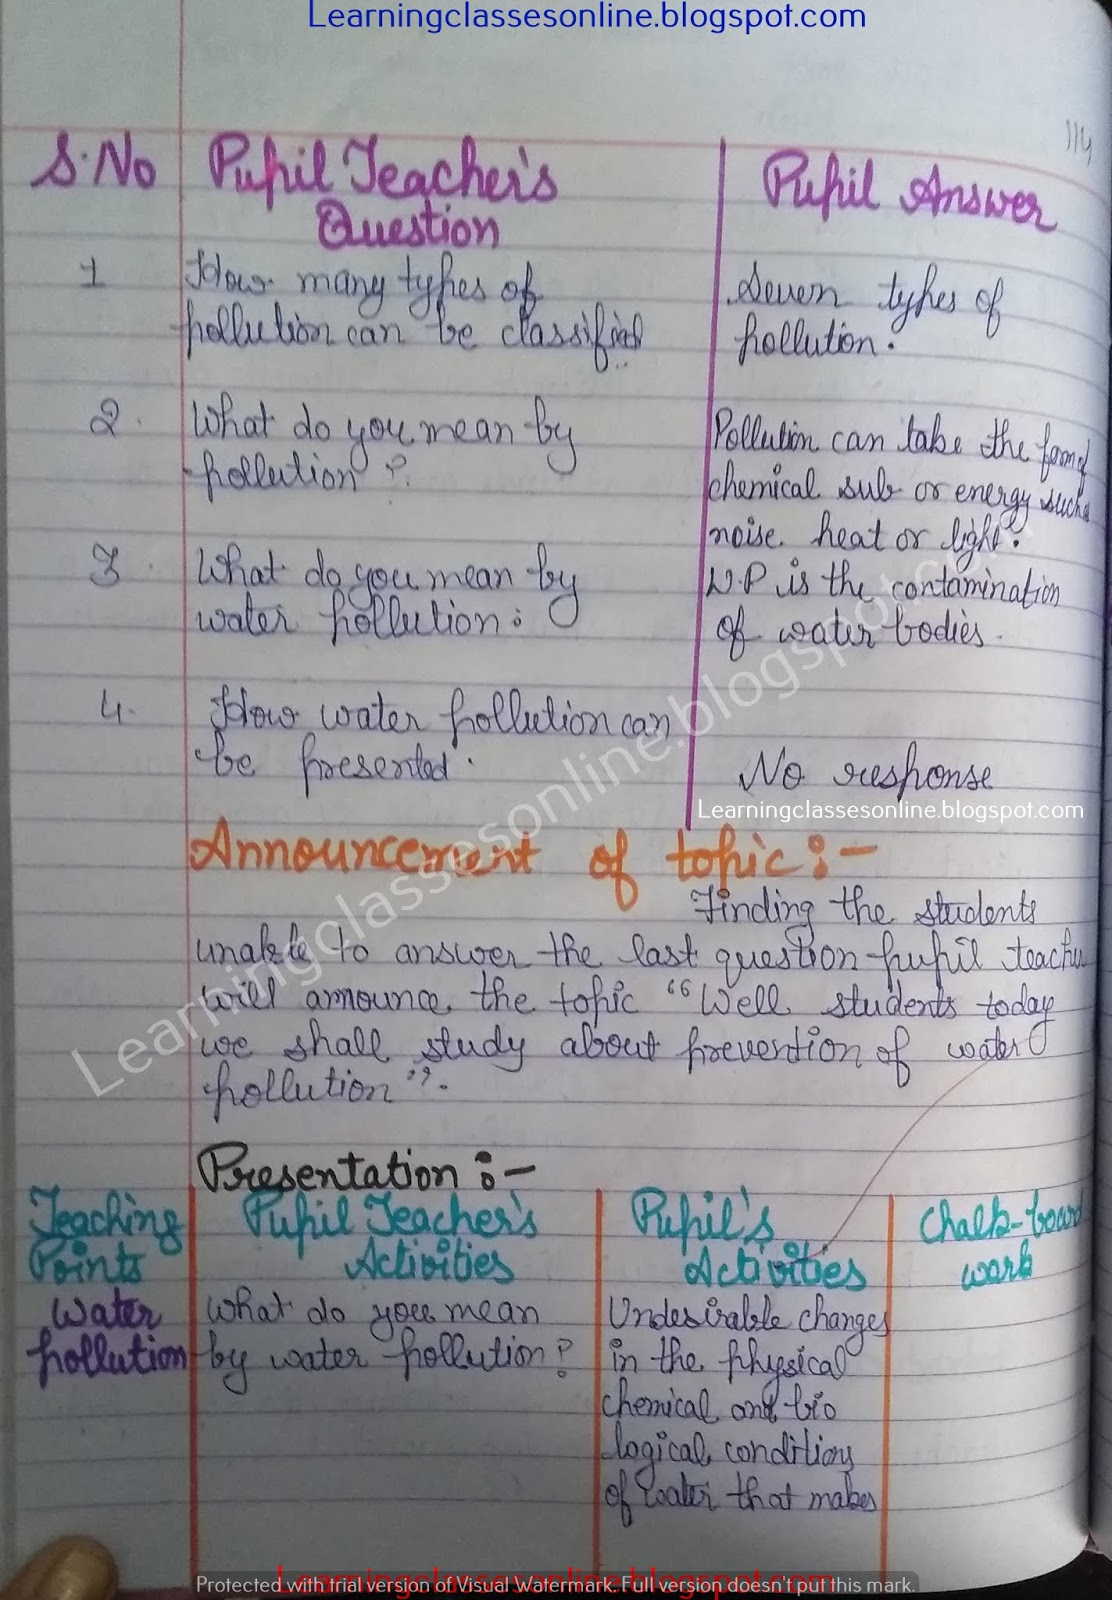 Learningclassesonline.blogspot.com
114
S.No Pupil Teacher's Pupil Answer
Question
1 How many types of Seven types of
pollution can be classified pollution.
2. What do you mean by Pollution can take the form of
pollution? chemical sub or energy such
noise. heat or light.
3. What do you mean by W.P is the contamination
water pollution: of water bodies.
4. How water pollution can
be presented. No response
Learningclassesonline.blogspot.com
Announcement of topic:-
Finding the students
unable to answer the last question pupil teacher
will announce the topic "Well students today
we shall study about prevention of water
pollution".
Learningclassesonline.blogspot.com
Presentation :-
Teaching Pupil Teacher's Pupil's Chalk-board
Points Activities Activities work
Water What do you mean Undesirable changes
pollution by water pollution? in the physical
chemical and bio
logical conditions
of water that makes
Learningclassesonline.blogspot.com
Protected with trial version of Visual Watermark. Full version doesn't put this mark.